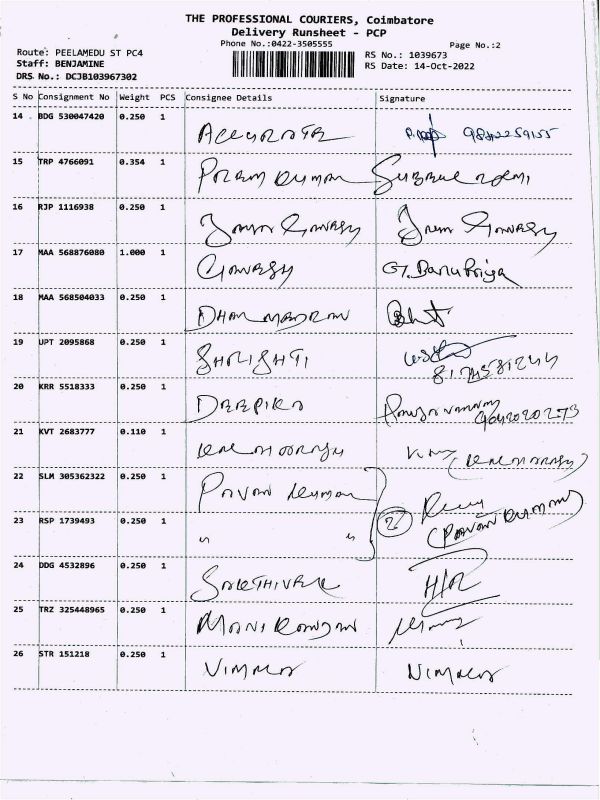 THE PROFESSIONAL COURIERS, Coimbatore
Delivery Runsheet - PCP
Phone No.:0422-3505555
Page No.:2
Route: PEELAMEDU ST PC4
Staff: BENJAMINE
DRS No.: DCJB103967302
RS No.: 1039673
RS Date: 14-Oct-2022
S No Consignment No Weight PCS Consignee Details Signature
14 . BDG 530047420 0.250 1 ACCURATE
15 TRP 4766091 0.354 1 Param Kumar
16 RJP 1116938 0.250 1
17 MAA 568876080 1.000 1 G.Banu Priya
18 MAA 568504033 0.250 1
19 UPT 2095868 0.250 1 SHRISHTI
20 KRR 5518333 0.250 1 DEEPIKA
21 KVT 2683777 0.110 1
22 SLM 305362322 0.250 1 Pavan Kumar
23 RSP 1739493 0.250 1 " " (2) (Pavan Kumar)
24 DDG 4532896 0.250 1 SAKTHIVEL
25 TRZ 325448965 0.250 1
26 STR 151218 0.250 1 VIMALA VIMALA